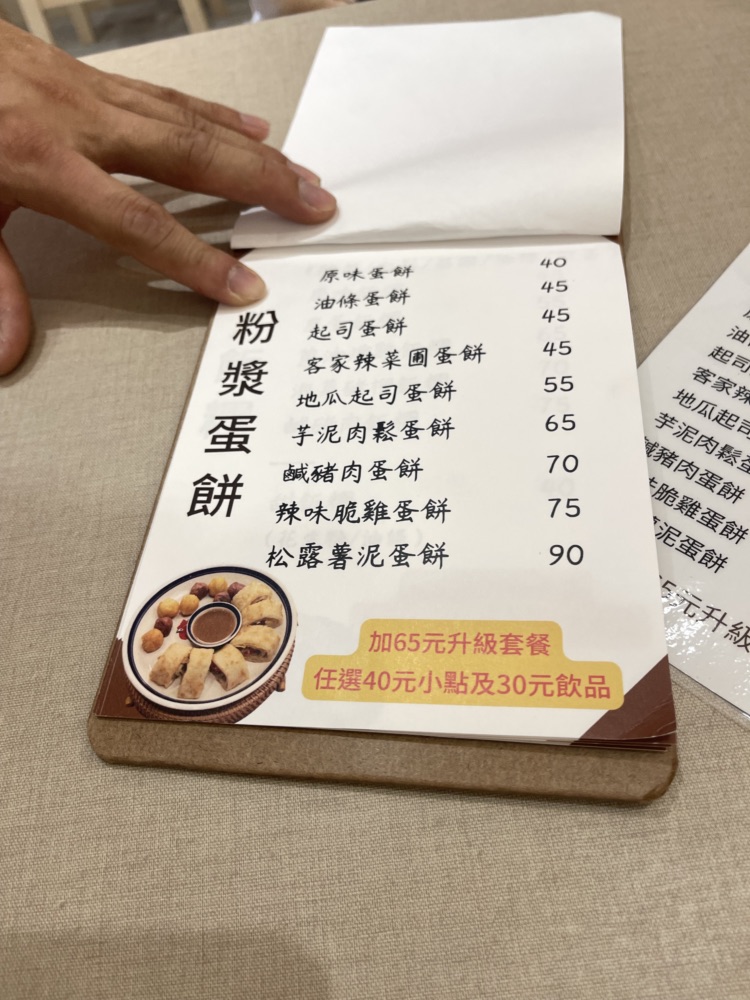 粉漿蛋餅
原味蛋餅 40
油條蛋餅 45
起司蛋餅 45
客家辣菜圃蛋餅 45
地瓜起司蛋餅 55
芋泥肉鬆蛋餅 65
鹹豬肉蛋餅 70
辣味脆雞蛋餅 75
松露薯泥蛋餅 90
加65元升級套餐
任選40元小點及30元飲品
油
起司
客家辣
地瓜起司
芋泥肉鬆蛋
鹹豬肉蛋餅
脆雞蛋餅
泥蛋餅
5元升級